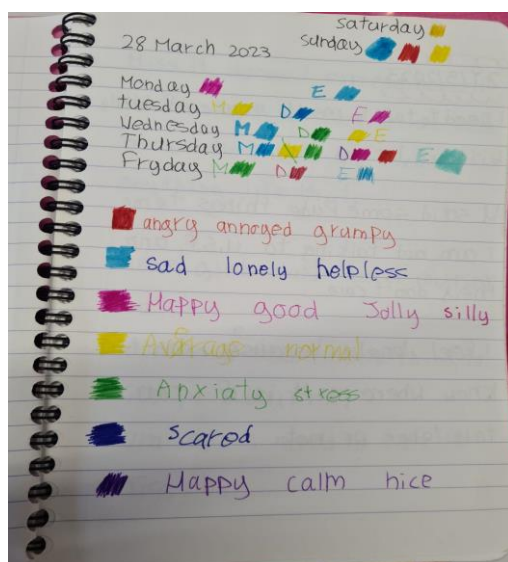 saturday
28 March 2023 sunday
Monday E
tuesday M D E
Wednesday M D E
Thursday M D E
Fryday M D E
angry annoyed grumpy
sad lonely helpless
Happy good Jolly silly
Average normal
Anxiaty stress
scared
Happy calm nice